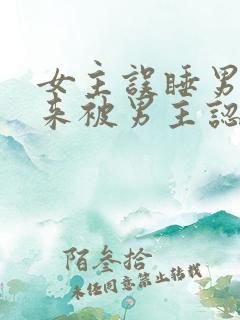 女主誤睡男
來被男主認
陌叁拾
未任同意禁止转载